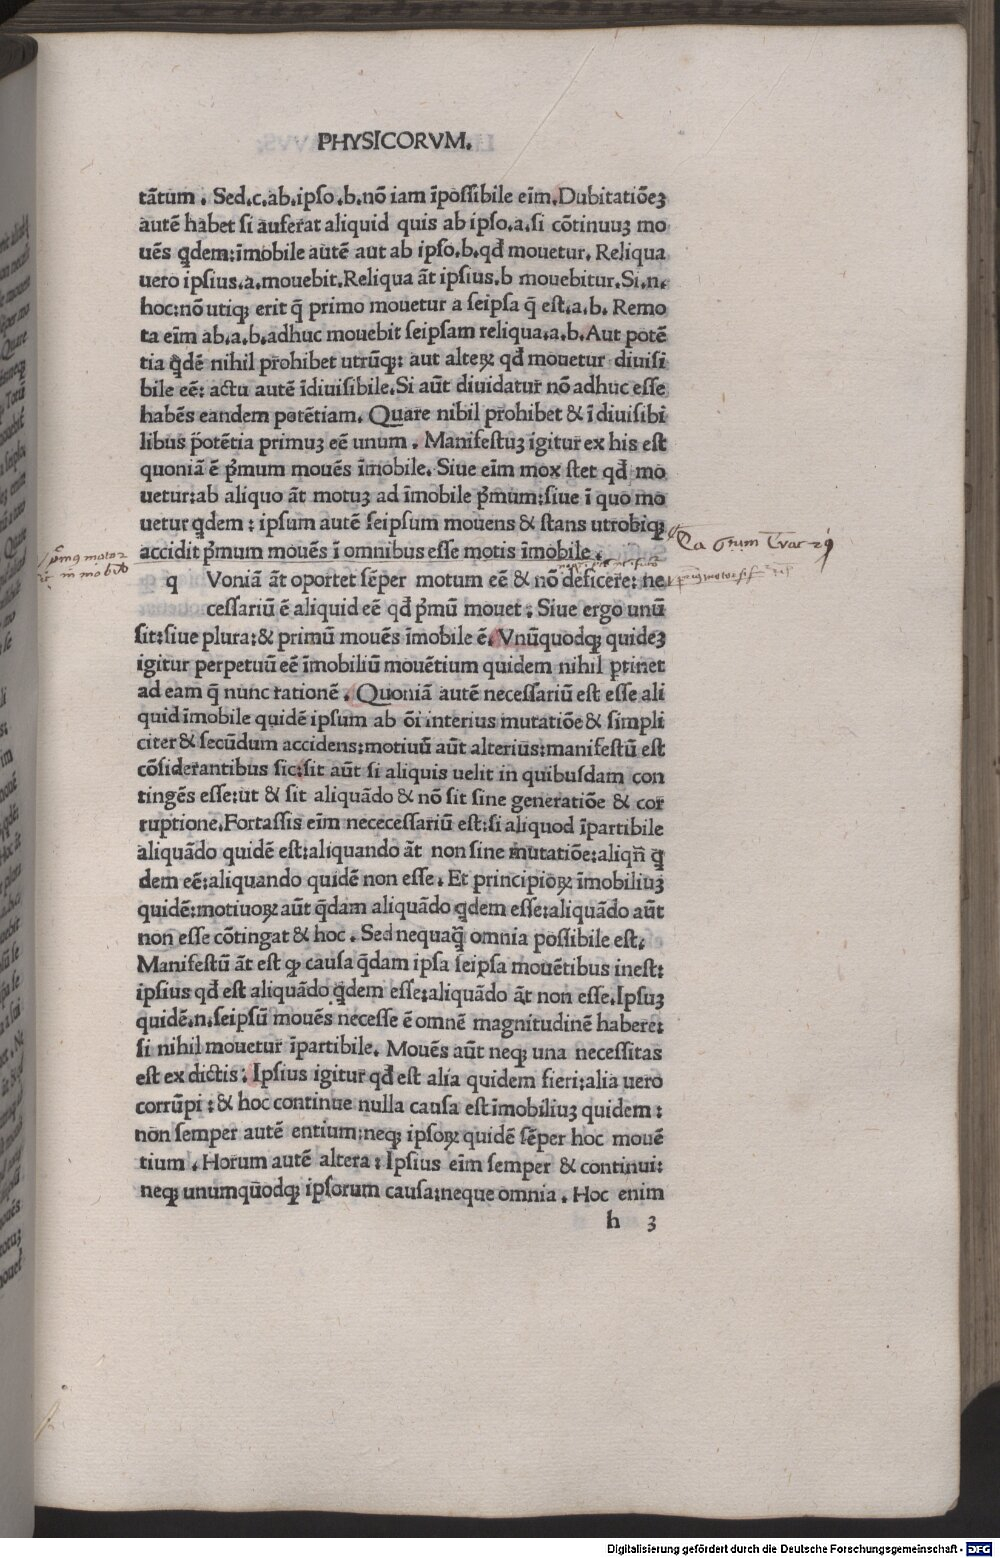 PHYSICORVM.
tãtum . Sed.c.ab.ipso.b.nõ iam ĩpossibile eĩm.Dubitatiõeʒ
autẽ habet si auferat aliquid quis ab ipso.a.si cõtinuuʒ mo
uẽs q̃dem:ĩmobile autẽ aut ab ipso.b.qđ mouetur. Reliqua
uero ipsius.a.mouebit.Reliqua ãt ipsius.b mouebitur.Si.n.
hoc:nõ utiqꝫ erit q̃ primo mouetur a seipsa q̃ est.a.b. Remo
ta eĩm ab.a.b.adhuc mouebit seipsam reliqua.a.b.Aut potẽ
tia q̃dẽ nihil prohibet utrũqꝫ: aut alteꝝ qđ mouetur diuisi
bile eẽ: actu autẽ ĩdiuisibile.Si aũt diuidatur nõ adhuc esse
habẽs eandem potẽtiam. Quare nihil prohibet & ĩ diuisibi
libus p̃otẽtia primuʒ eẽ unum . Manifestuʒ igitur ex his est
quoniã ẽ p̃mum mouẽs ĩmobile. Siue eĩm mox stet qđ mo
uetur:ab aliquo ãt motuʒ ad ĩmobile p̃mum:siue ĩ quo mo
uetur q̃dem : ipsum autẽ seipsum mouens & stans utrobiqꝫ
accidit p̃mum mouẽs ĩ omnibus esse motis ĩmobile .
q Voniã ãt oportet sẽper motum eẽ & nõ deficere: ne
cessariũ ẽ aliquid eẽ qđ p̃mũ mouet : Siue ergo unũ
sit:siue plura:& primũ mouẽs ĩmobile ẽ. Vnũquodqꝫ quideʒ
igitur perpetuũ eẽ ĩmobiliũ mouẽtium quidem nihil ꝑtinet
ad eam q̃ nunc rationẽ . Quoniã autẽ necessariũ est esse ali
quid ĩmobile quidẽ ipsum ab õi interius mutatiõe & simpli
citer & secũdum accidens:motiuũ aũt alterius:manifestũ est
cõsiderantibus sic:sit aũt si aliquis uelit in quibusdam con
tingẽs esse:ut & sit aliquãdo & nõ sit sine generatiõe & cor
ruptione.Fortassis eĩm nececessariũ est:si aliquod ĩpartibile
aliquãdo quidẽ est:aliquando ãt non sine mutatiõe:aliqñ q̃
dem eẽ:aliquando quidẽ non esse . Et principioꝝ ĩmobiliuʒ
quidẽ:motiuoꝝ aũt q̃dam aliquãdo q̃dem esse:aliquãdo aũt
non esse cõtingat & hoc . Sed nequaq̃ omnia possibile est.
Manifestũ ãt est ꝙ causa q̃dam ipsa seipsa mouẽtibus inest:
ipsius qđ est aliquãdo q̃dem esse:aliquãdo ãt non esse.Ipsuʒ
quidẽ.n.seipsũ mouẽs necesse ẽ omnẽ magnitudinẽ habere:
si nihil mouetur ĩpartibile. Mouẽs aũt neqꝫ una necessitas
est ex dictis . Ipsius igitur qđ est alia quidem fieri:alia uero
corrũpi : & hoc continue nulla causa est ĩmobiliuʒ quidem :
non semper autẽ entium:neqꝫ ipsoꝝ quidẽ sẽper hoc mouẽ
tium . Horum autẽ altera : Ipsius eĩm semper & continui:
neqꝫ unumqũodqꝫ ipsorum causa:neque omnia . Hoc enim
h 3
Digitalisierung gefördert durch die Deutsche Forschungsgemeinschaft - DFG